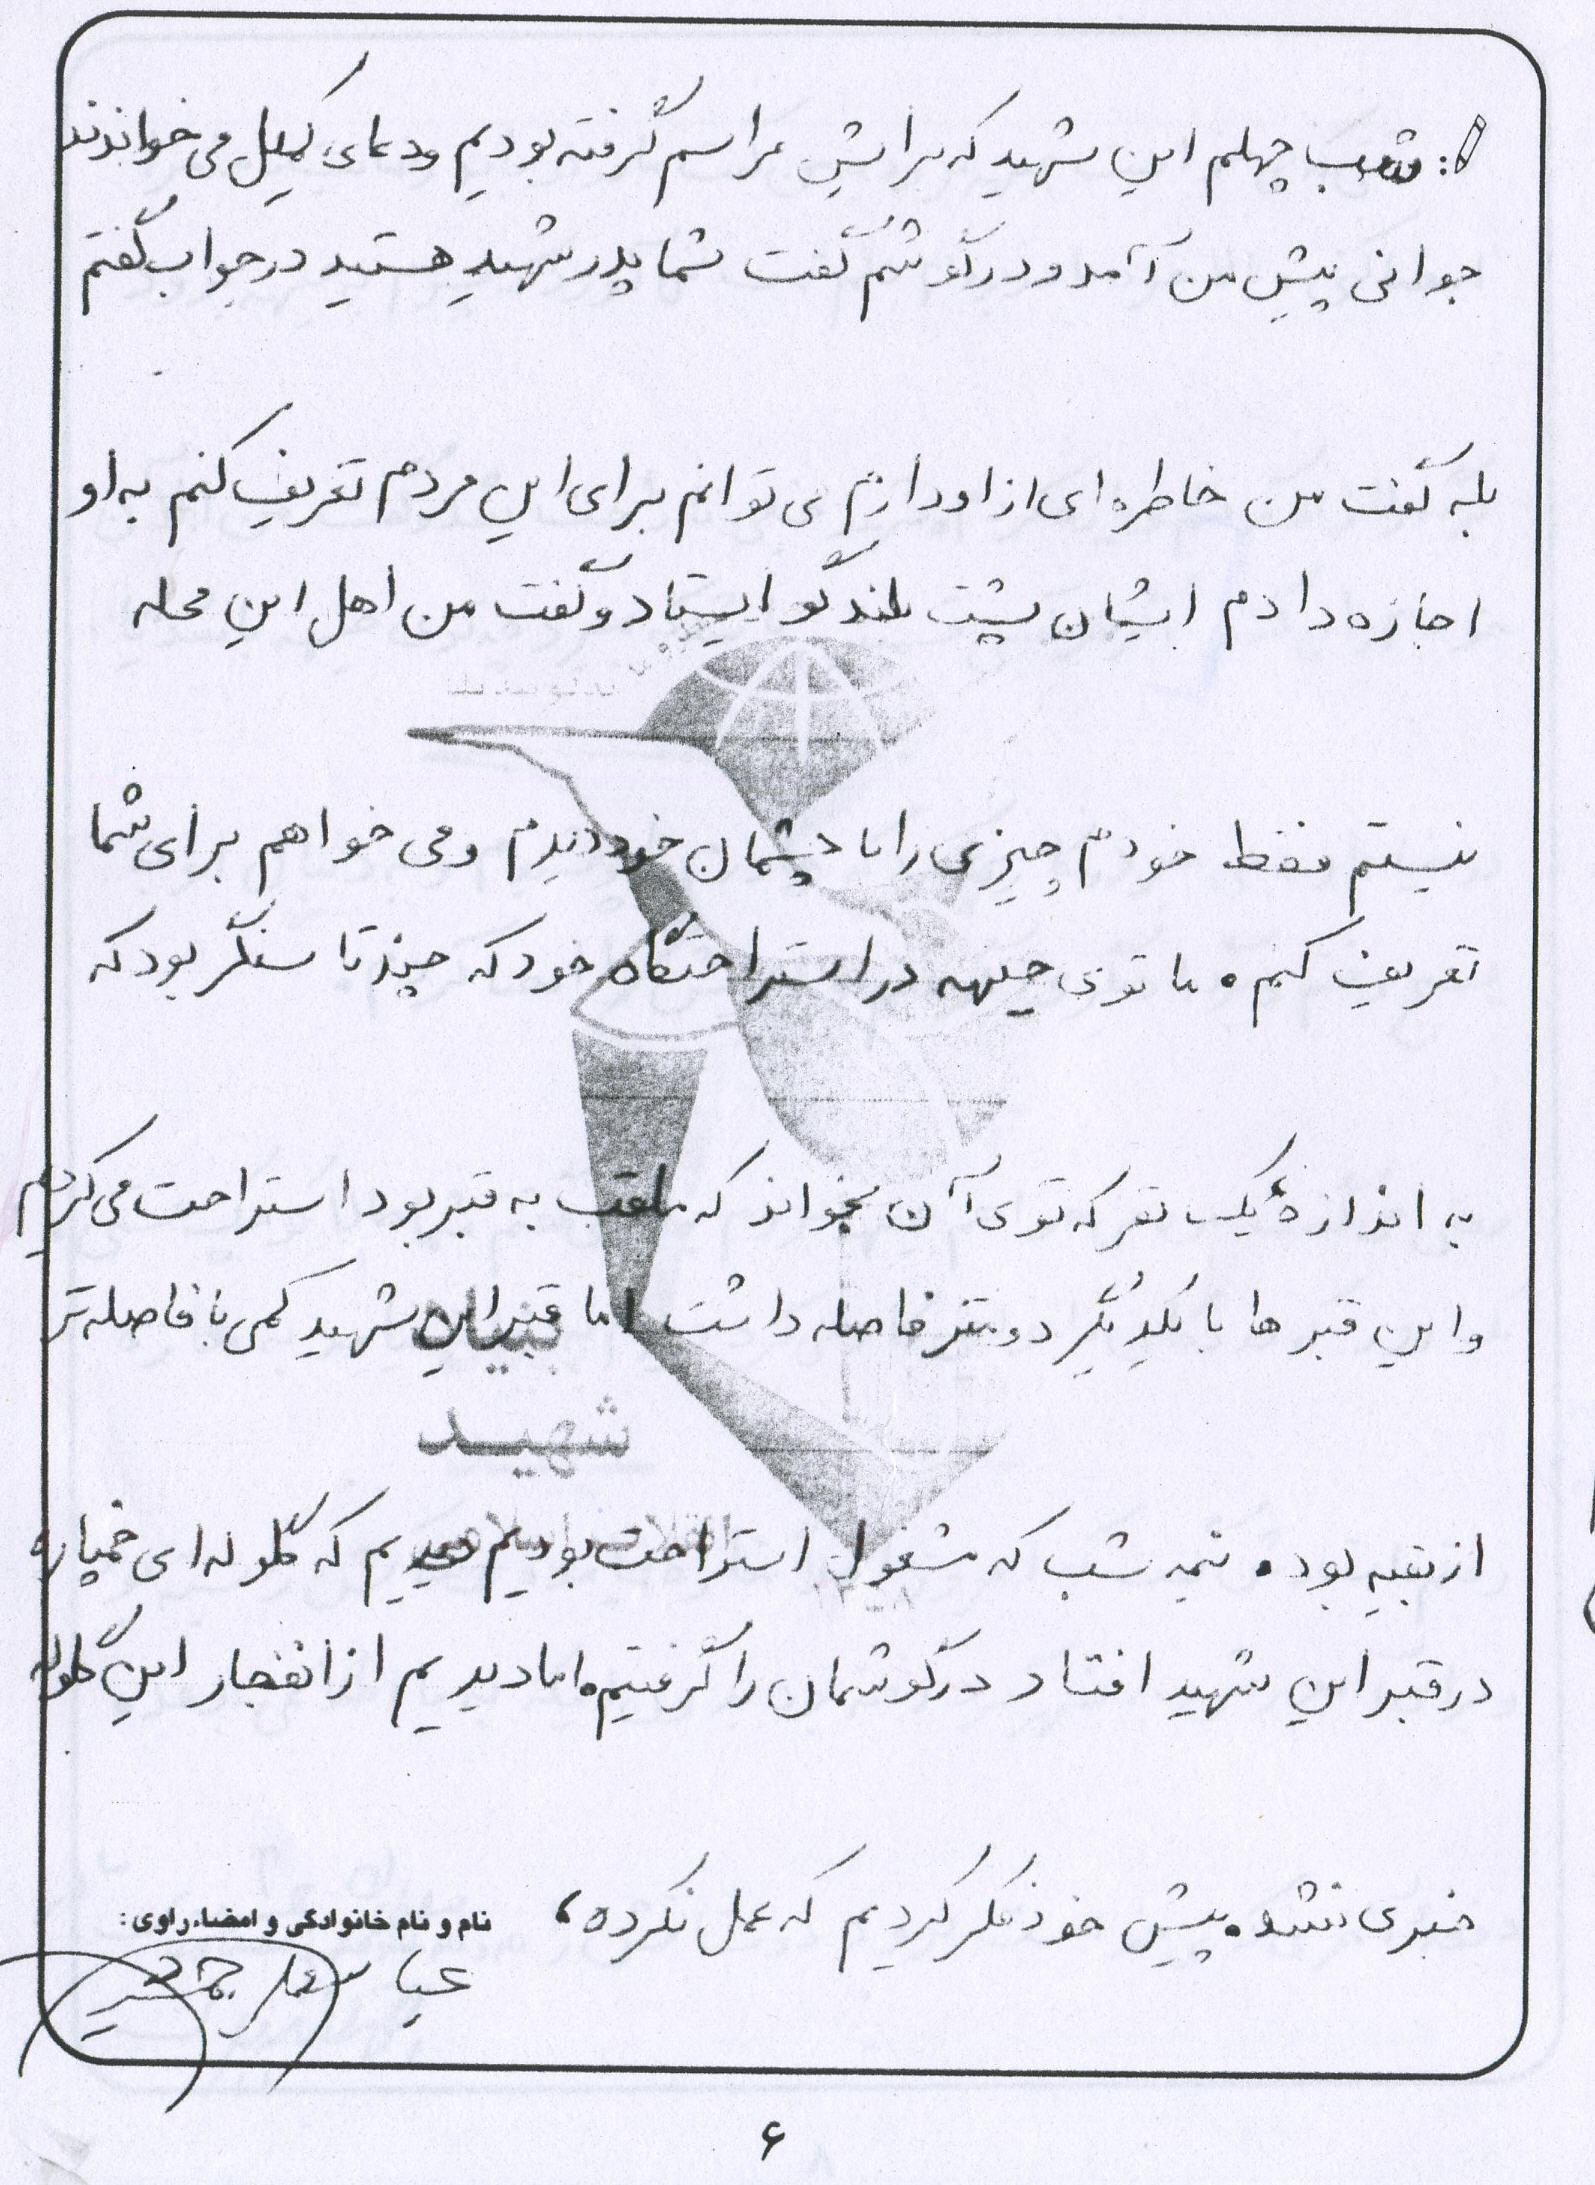 شب چهلم این شهید که برایش مراسم گرفته بودیم ودعای کمیل می خواندند
جوانی پیش من آمد و در گوشم گفت شما پدر شهید هستید در جواب گفتم
بله گفت من خاطره ای از او دارم می توانم برای این مردم تعریف کنم به او
اجازه دادم ایشان پشت بلندگو ایستاد و گفت من اهل این محله
نیستم فقط خودم چیزی را با چشمان خود دیدم و می خواهم برای شما
تعریف کنم. ما توی جبهه در استراحتگاه خود که چند تا سنگر بود که
به اندازهٔ یک نفر که توی آن بخوابد که ملقب به قبر بود استراحت می کردیم
و این قبر ها با یکدیگر دو متر فاصله داشت اما قبر این شهید کمی با فاصله تر
شهید
از بقیه بود. نیمه شب که مشغول استراحت بودیم دیدیم که گلوله ای خمپاره
در قبر این شهید افتاد در گوشمان را گرفتیم. اما دیدیم از انفجار این گلوله
خبری نشد. پیش خود فکر کردیم که عمل نکرده،
نام و نام خانوادگی و امضاء راوی:
۶